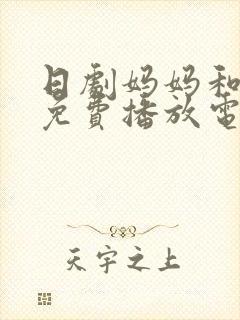 日劇妈妈和
免費播放電
天宇之上